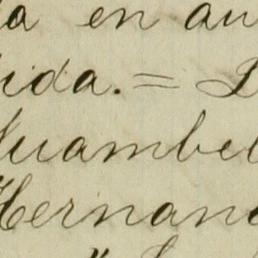 a en au
ida. =
uambel
Hernand